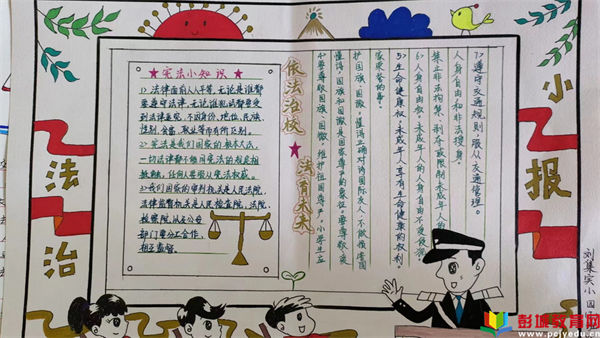 法治
小报
★宪法小知识★
1)法律面前人人平等,无论是谁都
要遵守法律,无论谁犯法都要受
到法律追究,不因身份,地位,民族,
性别,
职业等而有所区别。
2)宪法是我们国家的根本大法,
一切法律都不能同宪法的规定相
抵触,任何人要服从宪法权威。
3)我们国家的审判机关是人民法院,
法律监督机关是人民检察院,法院,
检察院,以及公安
部门要分工合作,
相互监督。
依法治校
★
法育未来
7)遵守交通规则,服从交通管理。
人身自由和非法搜身。
禁止非法拘禁、剥夺或限制未成年人的
6)人身自由权:未成年人的人身自由不受侵犯,
5)生命健康权:未成年人享有生命健康的权利。
家荣誉的事。
护国旗、国徽,懂得正确对待国际友人,不做损害国
懂得,国旗和国徽是国家尊严的象征。要尊敬,爱
4)要尊敬国旗、国徽,维护祖国尊严,小学生应
刘集实小四
彭城教育网
www.pcjyedu.cn